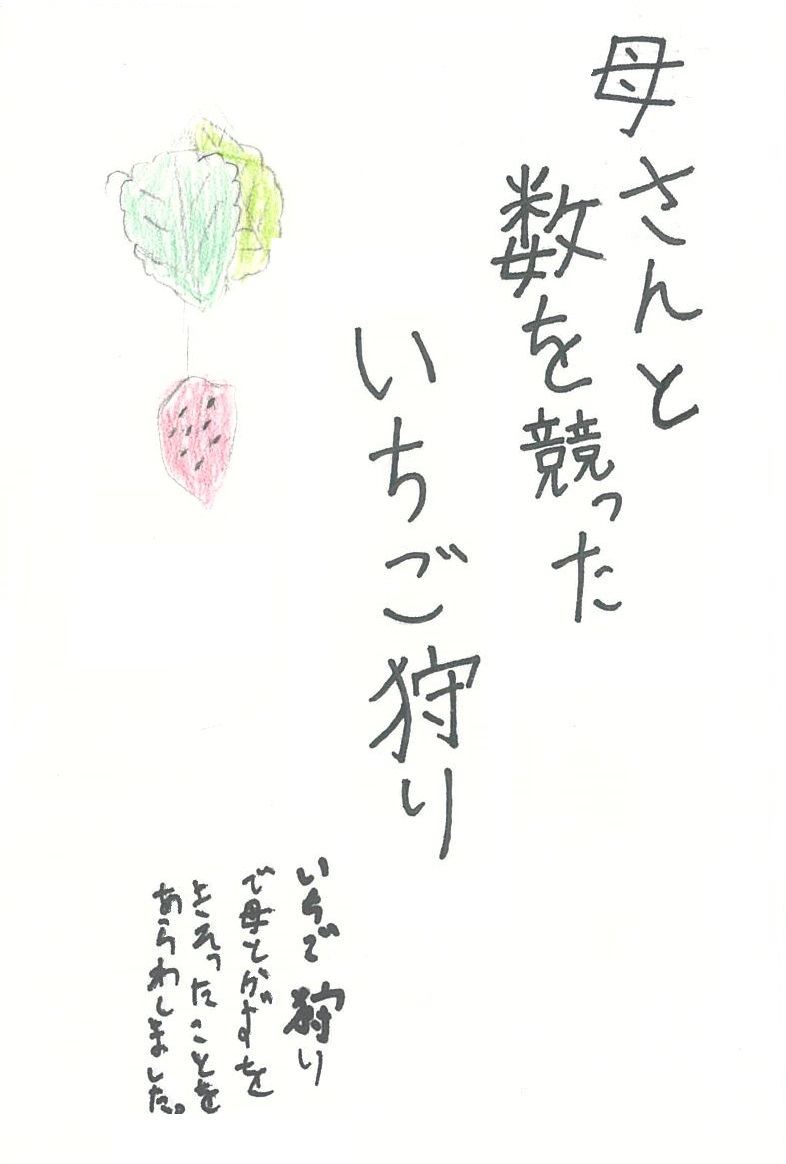 母さんと
数を競った
いちご狩り
いちご狩り
で母とかずを
きそったことを
あらわしました。